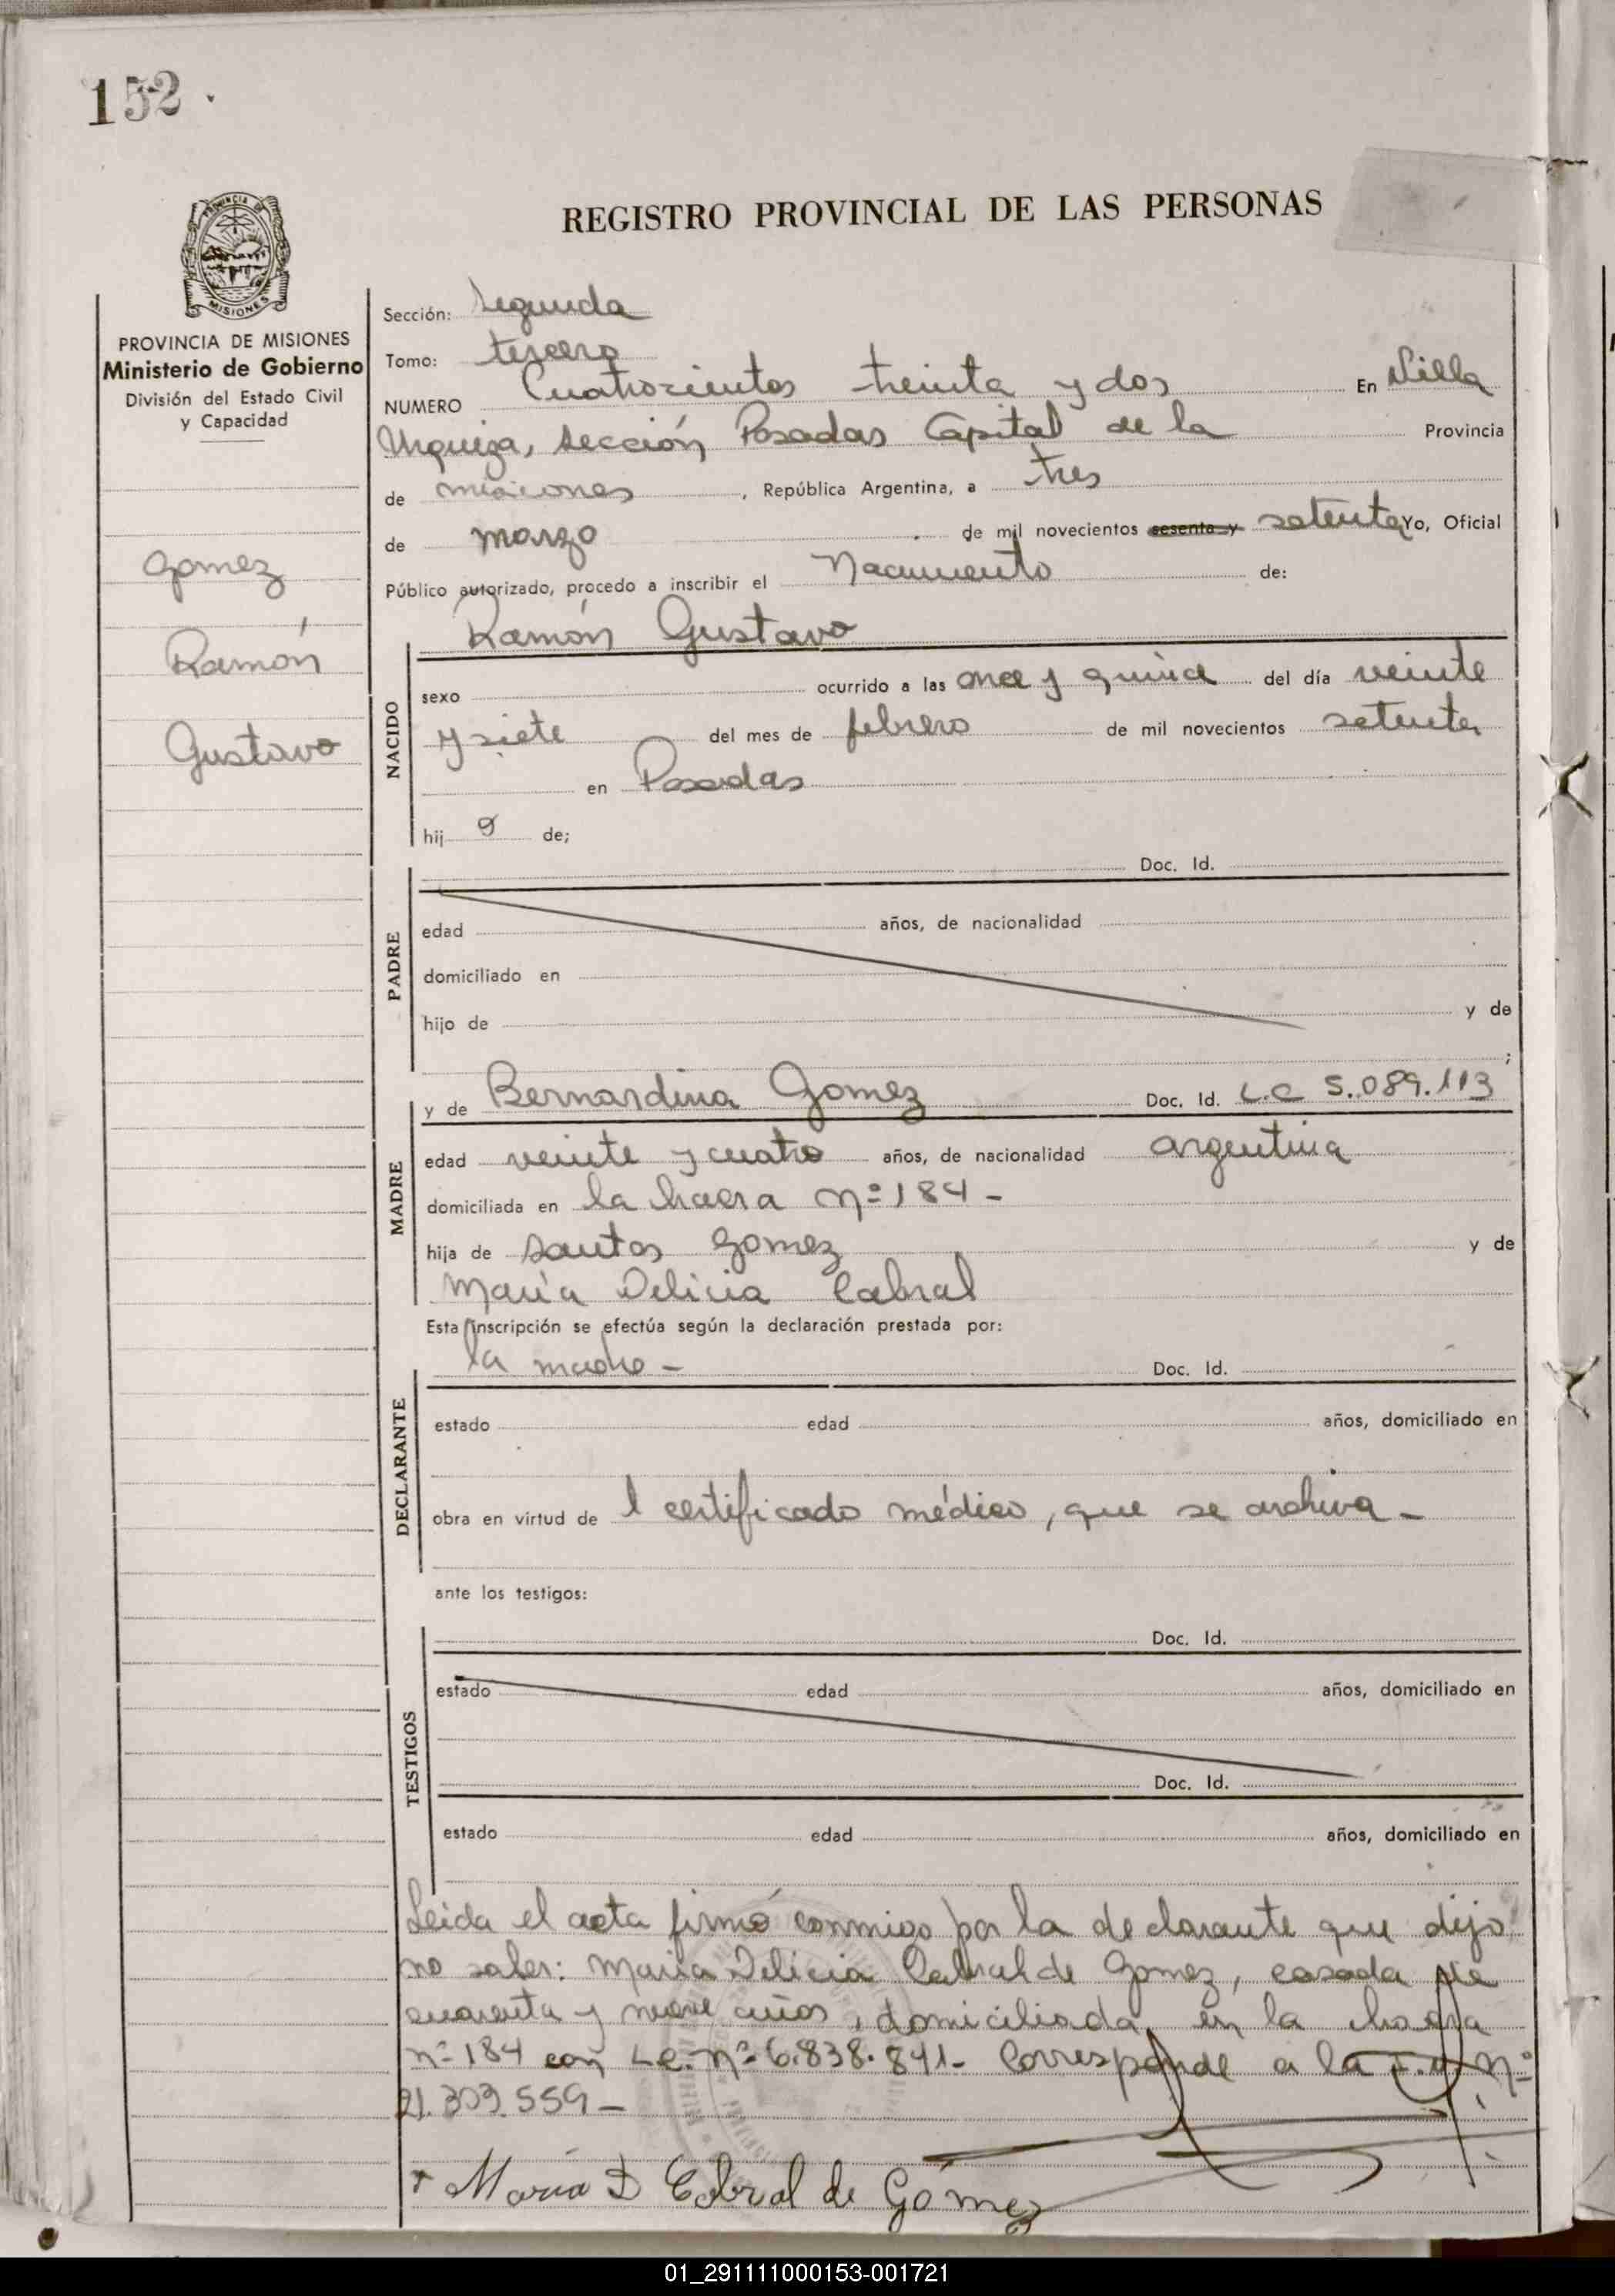 152.
REGISTRO PROVINCIAL DE LAS PERSONAS
PROVINCIA DE MISIONES
Ministerio de Gobierno
División del Estado Civil
y Capacidad
Gomez
Ramón
Gustavo
Sección: Segunda
Tomo: tercero
NUMERO Cuatrocientos treinta y dos En Villa
Urquiza, sección Posadas Capital de la Provincia
de misiones, República Argentina, a tres
de marzo de mil novecientos sesenta y setenta Yo, Oficial
Público autorizado, procedo a inscribir el Nacimiento de:
NACIDO
Ramón Gustavo
sexo ocurrido a las once y quince del día veinte
y siete del mes de febrero de mil novecientos setenta
en Posadas
hij o de;
PADRE
Doc. Id.
edad años, de nacionalidad
domiciliado en
hijo de y de
;
MADRE
y de Bernardina Gomez Doc. Id. L.C 5.089.113
edad veinte y cuatro años, de nacionalidad argentina
domiciliada en la chacra nº 184 -
hija de Santos Gomez y de
María Delicia Cabral
Esta inscripción se efectúa según la declaración prestada por:
DECLARANTE
la madre - Doc. Id.
estado edad años, domiciliado en
obra en virtud de l certificado médico, que se archiva -
ante los testigos:
TESTIGOS
Doc. Id.
estado edad años, domiciliado en
Doc. Id.
estado edad años, domiciliado en
Leida el acta firmó conmigo por la declarante que dijo
no saber: Maria Delicia Cabral de Gomez, casada de
cuarenta y nueve años, domiciliada en la chacra
nº 184 con L.C. nº 6.838.841 - Corresponde a la nº
21.303.559 -
María D Cabral de Gómez
01_291111000153-001721